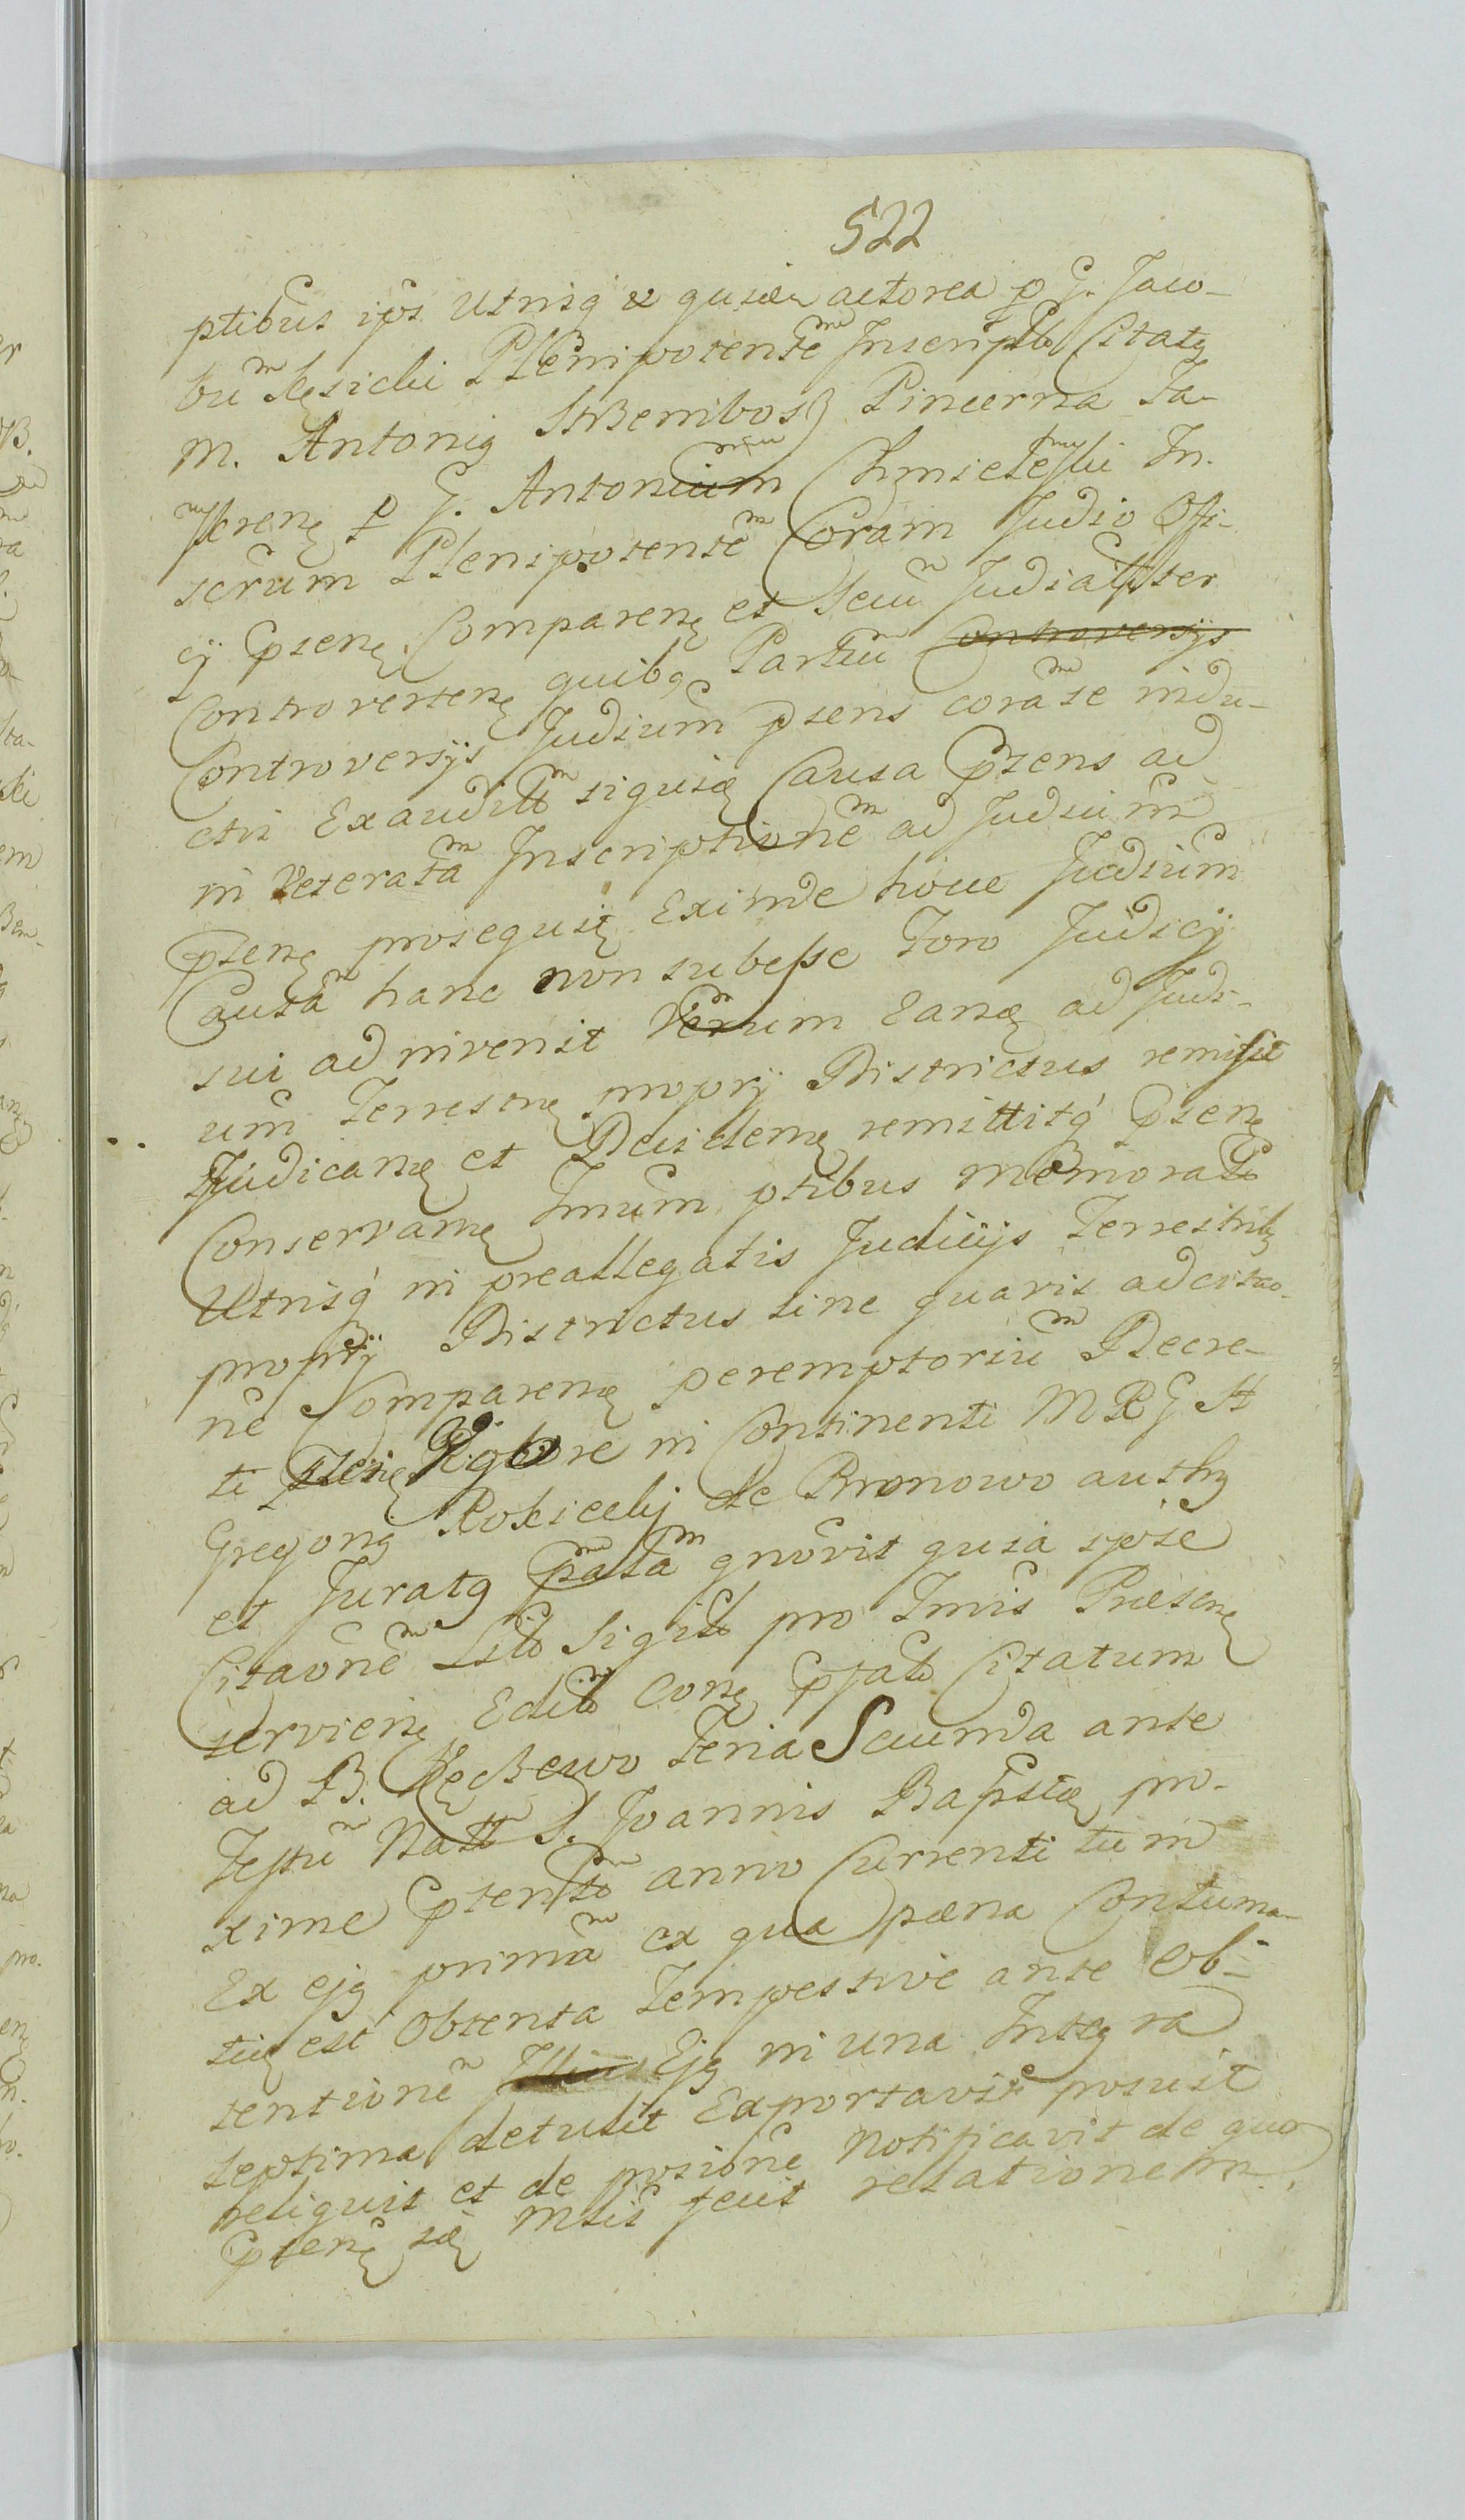 522
ptibus ips Utrisq & quidem actorea p G. Jaco-
bu Kęsicki Plenipotente Inscripto Citatq
M. Antoniq Strzembosz Pincerna Ja-
p G. Antonium Chmieleski In-
scrum Plenipotente Coram Judio Offi-
cij Psenę Comparenę et Secu Judialiter
Controvertenę quibq Partiu Controversijs
Controversijs Judium psens cora se indu-
ctis Exauditis siquidę Causa Psens ad
in Veterata Inscriptione ad Judium
Psenę prosequit Eximde hocce Judium
Causa hanc non subesse Foro Judicij
sui ad invenit Verum Eandę ad Judi-
um Terrestrę proprij Districtus remisit
Judicandę et Decidendę remittitq Psenę
Conservandę Tmum ptibus memorato
Utrisq in preallegatis Judicijs Terrestribq
proprij Districtus sine quavis adcitao-
ne Comparendę peremptoriu Decre-
ti Psenę Rigore in Continenti MRGH
Gregoriq Rokicelij de Bronowo authq
et Juratq gnovit quia ipse
Citaone Sigilo pro Tmis Præsenę
servienę Edito Conę Citatum
ad B. Feria Scunda ante
Festu Nati S. Joannis Baptistę pro-
xime anno Currenti tum
Ex ejq prima ex qua pæna Contuma-
est Obtenta Tempestive ante Ob-
tentione Illius Ejq in una Integra
septima detulit Exportavit posuit
reliquit et de posione Notificavit de quo
Psenę sę Mtis fecit relationem.